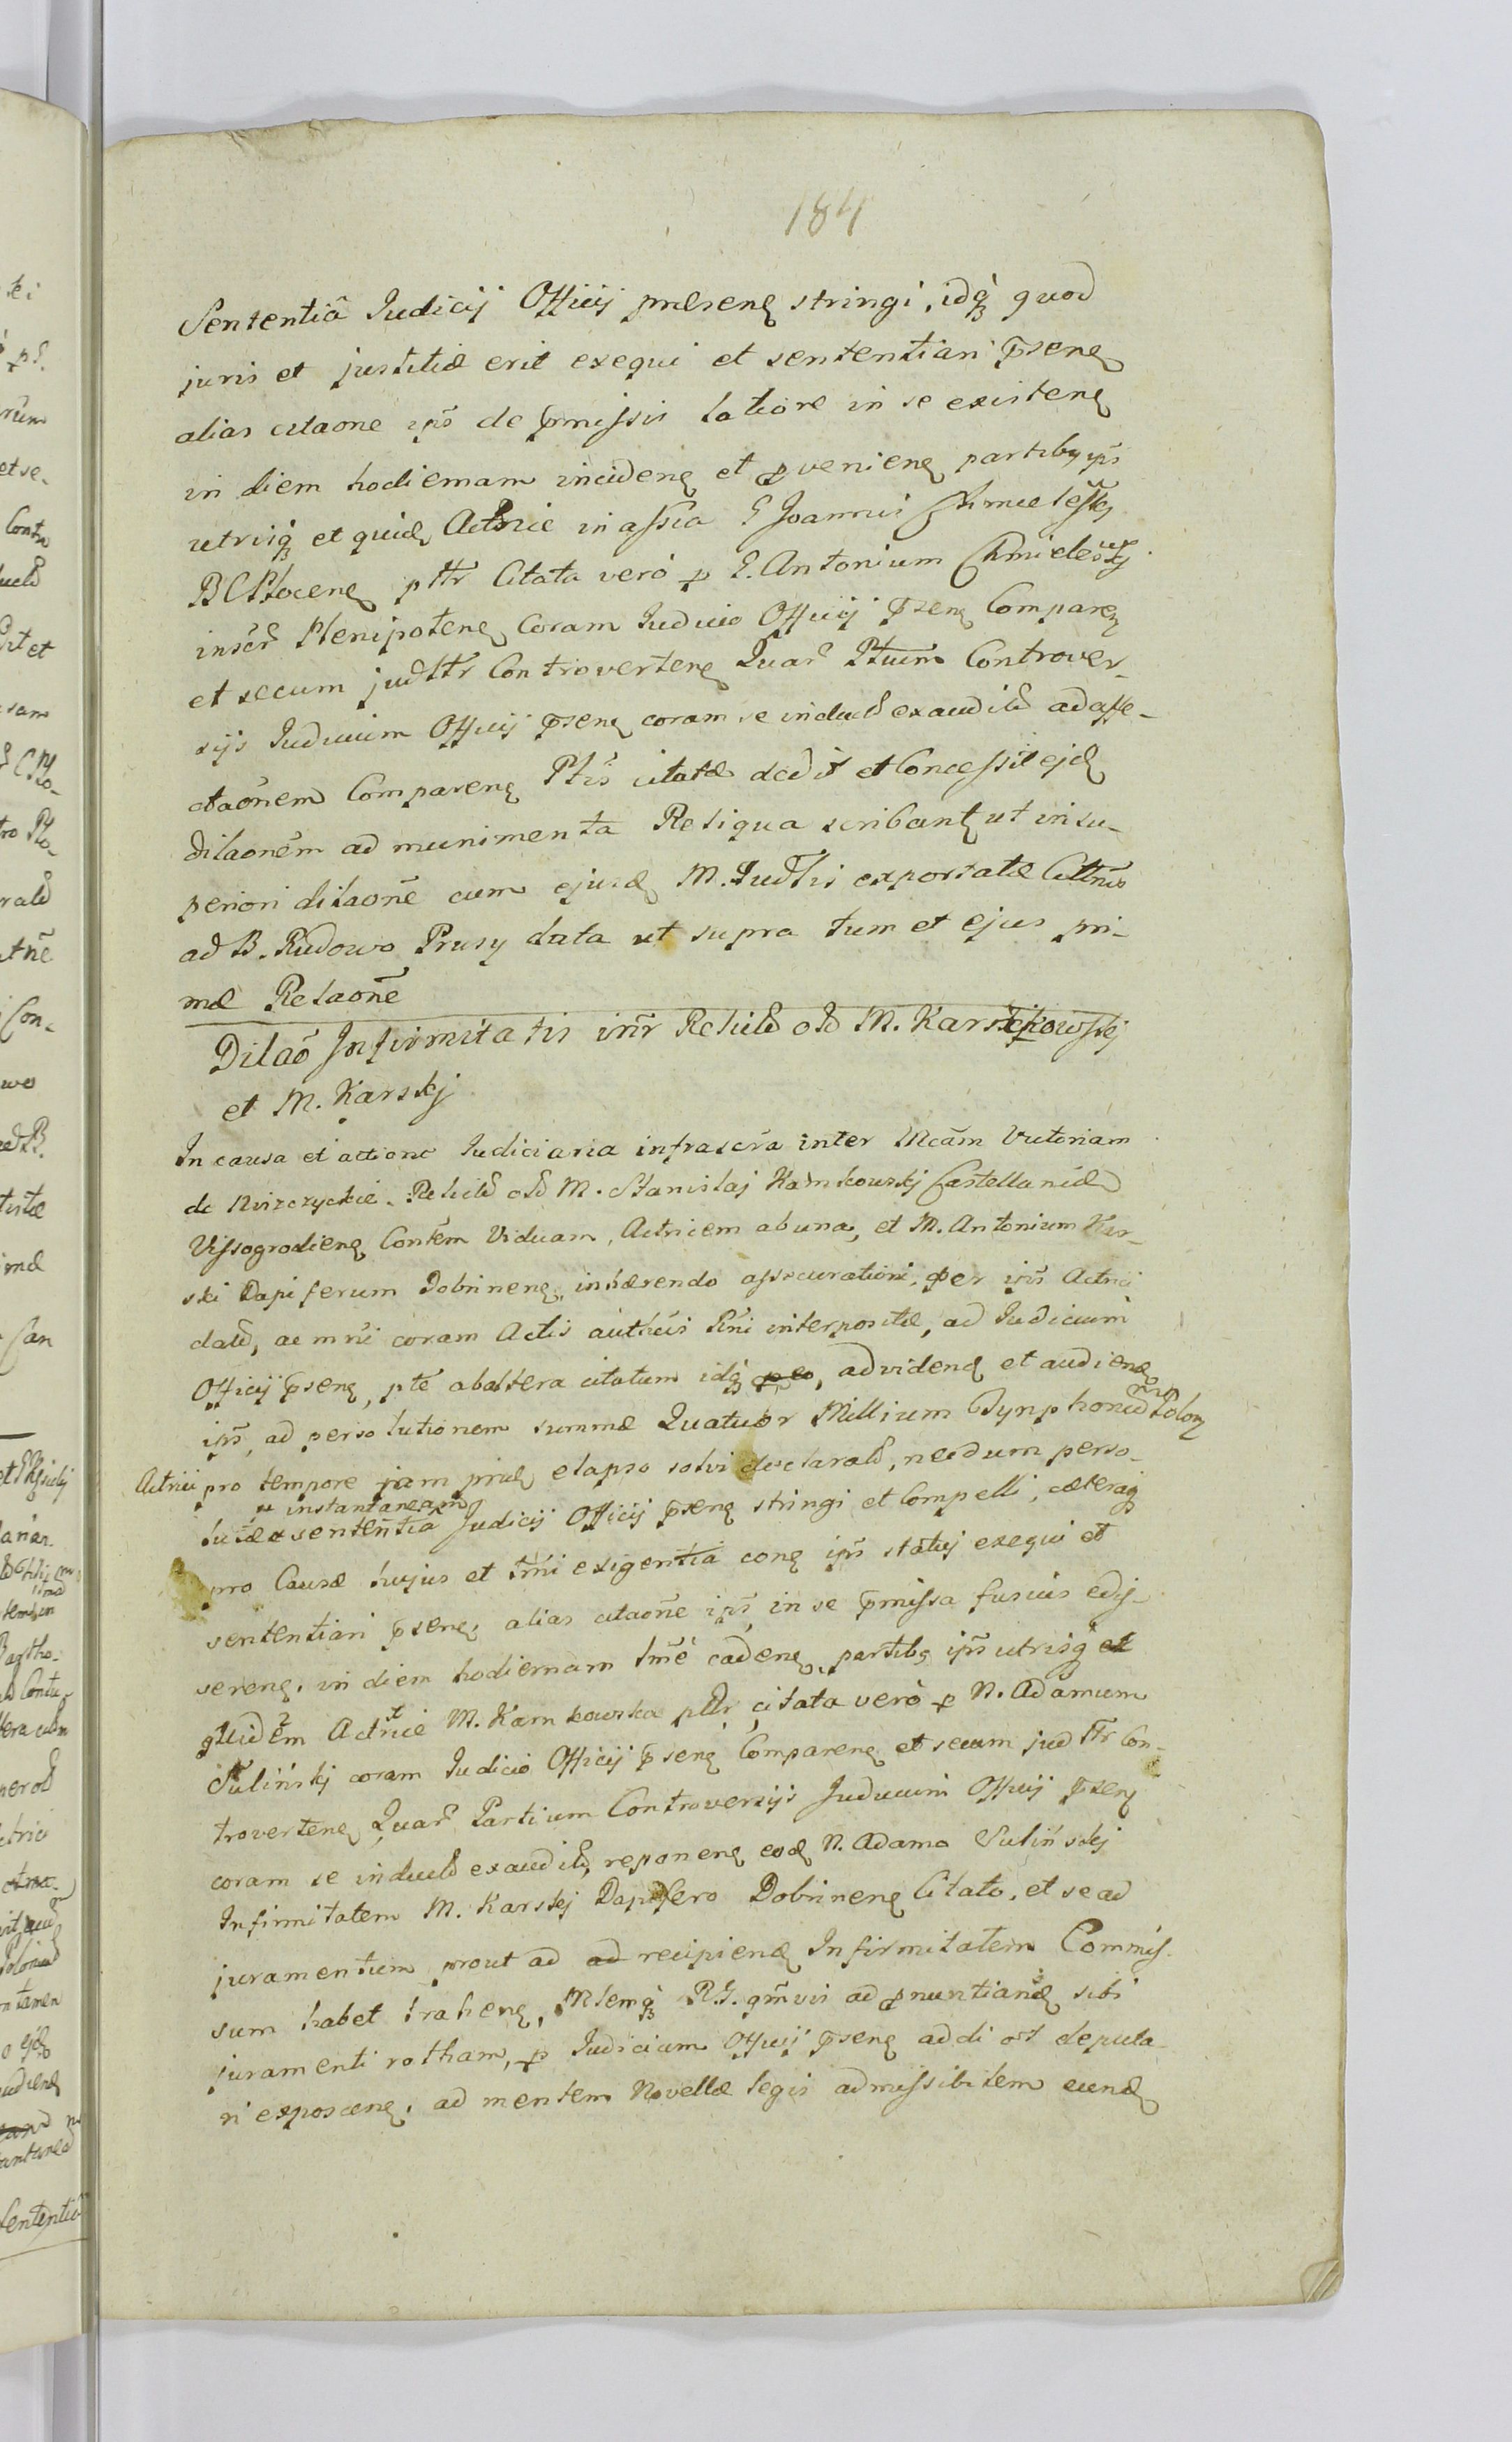 184
Sententiâ Judicij Officij præsenę stringi, idq́ꝫ quod
juris et justitiæ erit exequi et sententiari p̄senę
alias citaone ip̄s de p̄missis latiore in se existenę
in diem hodiernam incidenę et pvenienę partibꝫ ip̄s
utrisq́ꝫ et quidę Actrice in assia G Joannis Chmielewskj
BCPłocenę pttr Citata verò p G. Antonium Chmielewskj
inscr̄ Plenipotenę Coram Judicio Officij p̄senę Comparenę
et secum judttr Controvertenę Quar̄ Ptium Controver-
sijs Judicium Officij p̄senę coram se induct̄ exaudit̄ ad affe-
ctaōnem Comparenę Ptis citatæ dedit et Concessit ejdę
dilaonēm ad munimenta Reliqua scribantꝫ ut in su-
periori dilaonē cum ejusdę M. Judttis exportatæ Cittnis
ad B. Rudowo Prusy data ut supra tum et ejus pri-
mæ Relaonē
Dilaō Infirmitatis intr̄ Relict̄ olđ M. Karnkowskj
et M. Karskj
In causa et actione Judiciaria infrascr̄a inter Mcām Victoriam
de Mirzyckie Relict̄ olđ M. Stanislaj Karnkowskj Castellanidæ
Vissogrodienę Contēm Viduam, Actricem ab una, et M. Antonium Kar-
ski Dapiferum Dobrinenę, inhærendo assecurationi, per ip̄s Actrici
dat̄, ac mn̄i coram Actis authcis Rn̄i interpositæ, ad Judicium
Officij p̄senę, ptē ab altera citatum idq́ꝫ p eo, ad videnđ et audienđ
ip̄s, ad persolutionem summæ Quatuor Millium Tynphonū Polonꝫ
Actrici pro tempore jam pridę elapso solvi declarat̄, necdum perso-
lutæ instantaneam sententiâ Judicij Officij p̄senę stringi et Compelli, cæteraqꝫ
pro Causæ hujus et tm̄i exigentia conę ip̄s statuj exequi et
sententiari p̄senę, alias citaonē ip̄s, in se p̄missa fusius edis-
serenę, in diem hodiernam tm̄e cadenę, partibꝫ ip̄s utrisq et
quidēm Actrice M. Karnkowska pttr, citata verò p N. Adamum
Sulińskj coram Judicio Officij p̄senę Comparenę et secum judttr Con-
trovertenę Quar̄ Partium Controversijs Judicium Officij p̄senę
coram se induct̄ exaudit̄, reponenę eodę N. Adamo Sulińskj
Infirmitatem M. Karskj Dapifero Dobrinenę Citato, et se ad
juramentum prout ad ad recipienđ Infirmitatem Commis-
sum habet trahenę, Mtemq́ꝫ R.G. qm̄vis ad pnuntianđ sibi
juramenti rotham, p Judicium Officij p̄senę addi et deputa-
ri exposcenę, ad mentem Novellæ legis admissibilem eundę